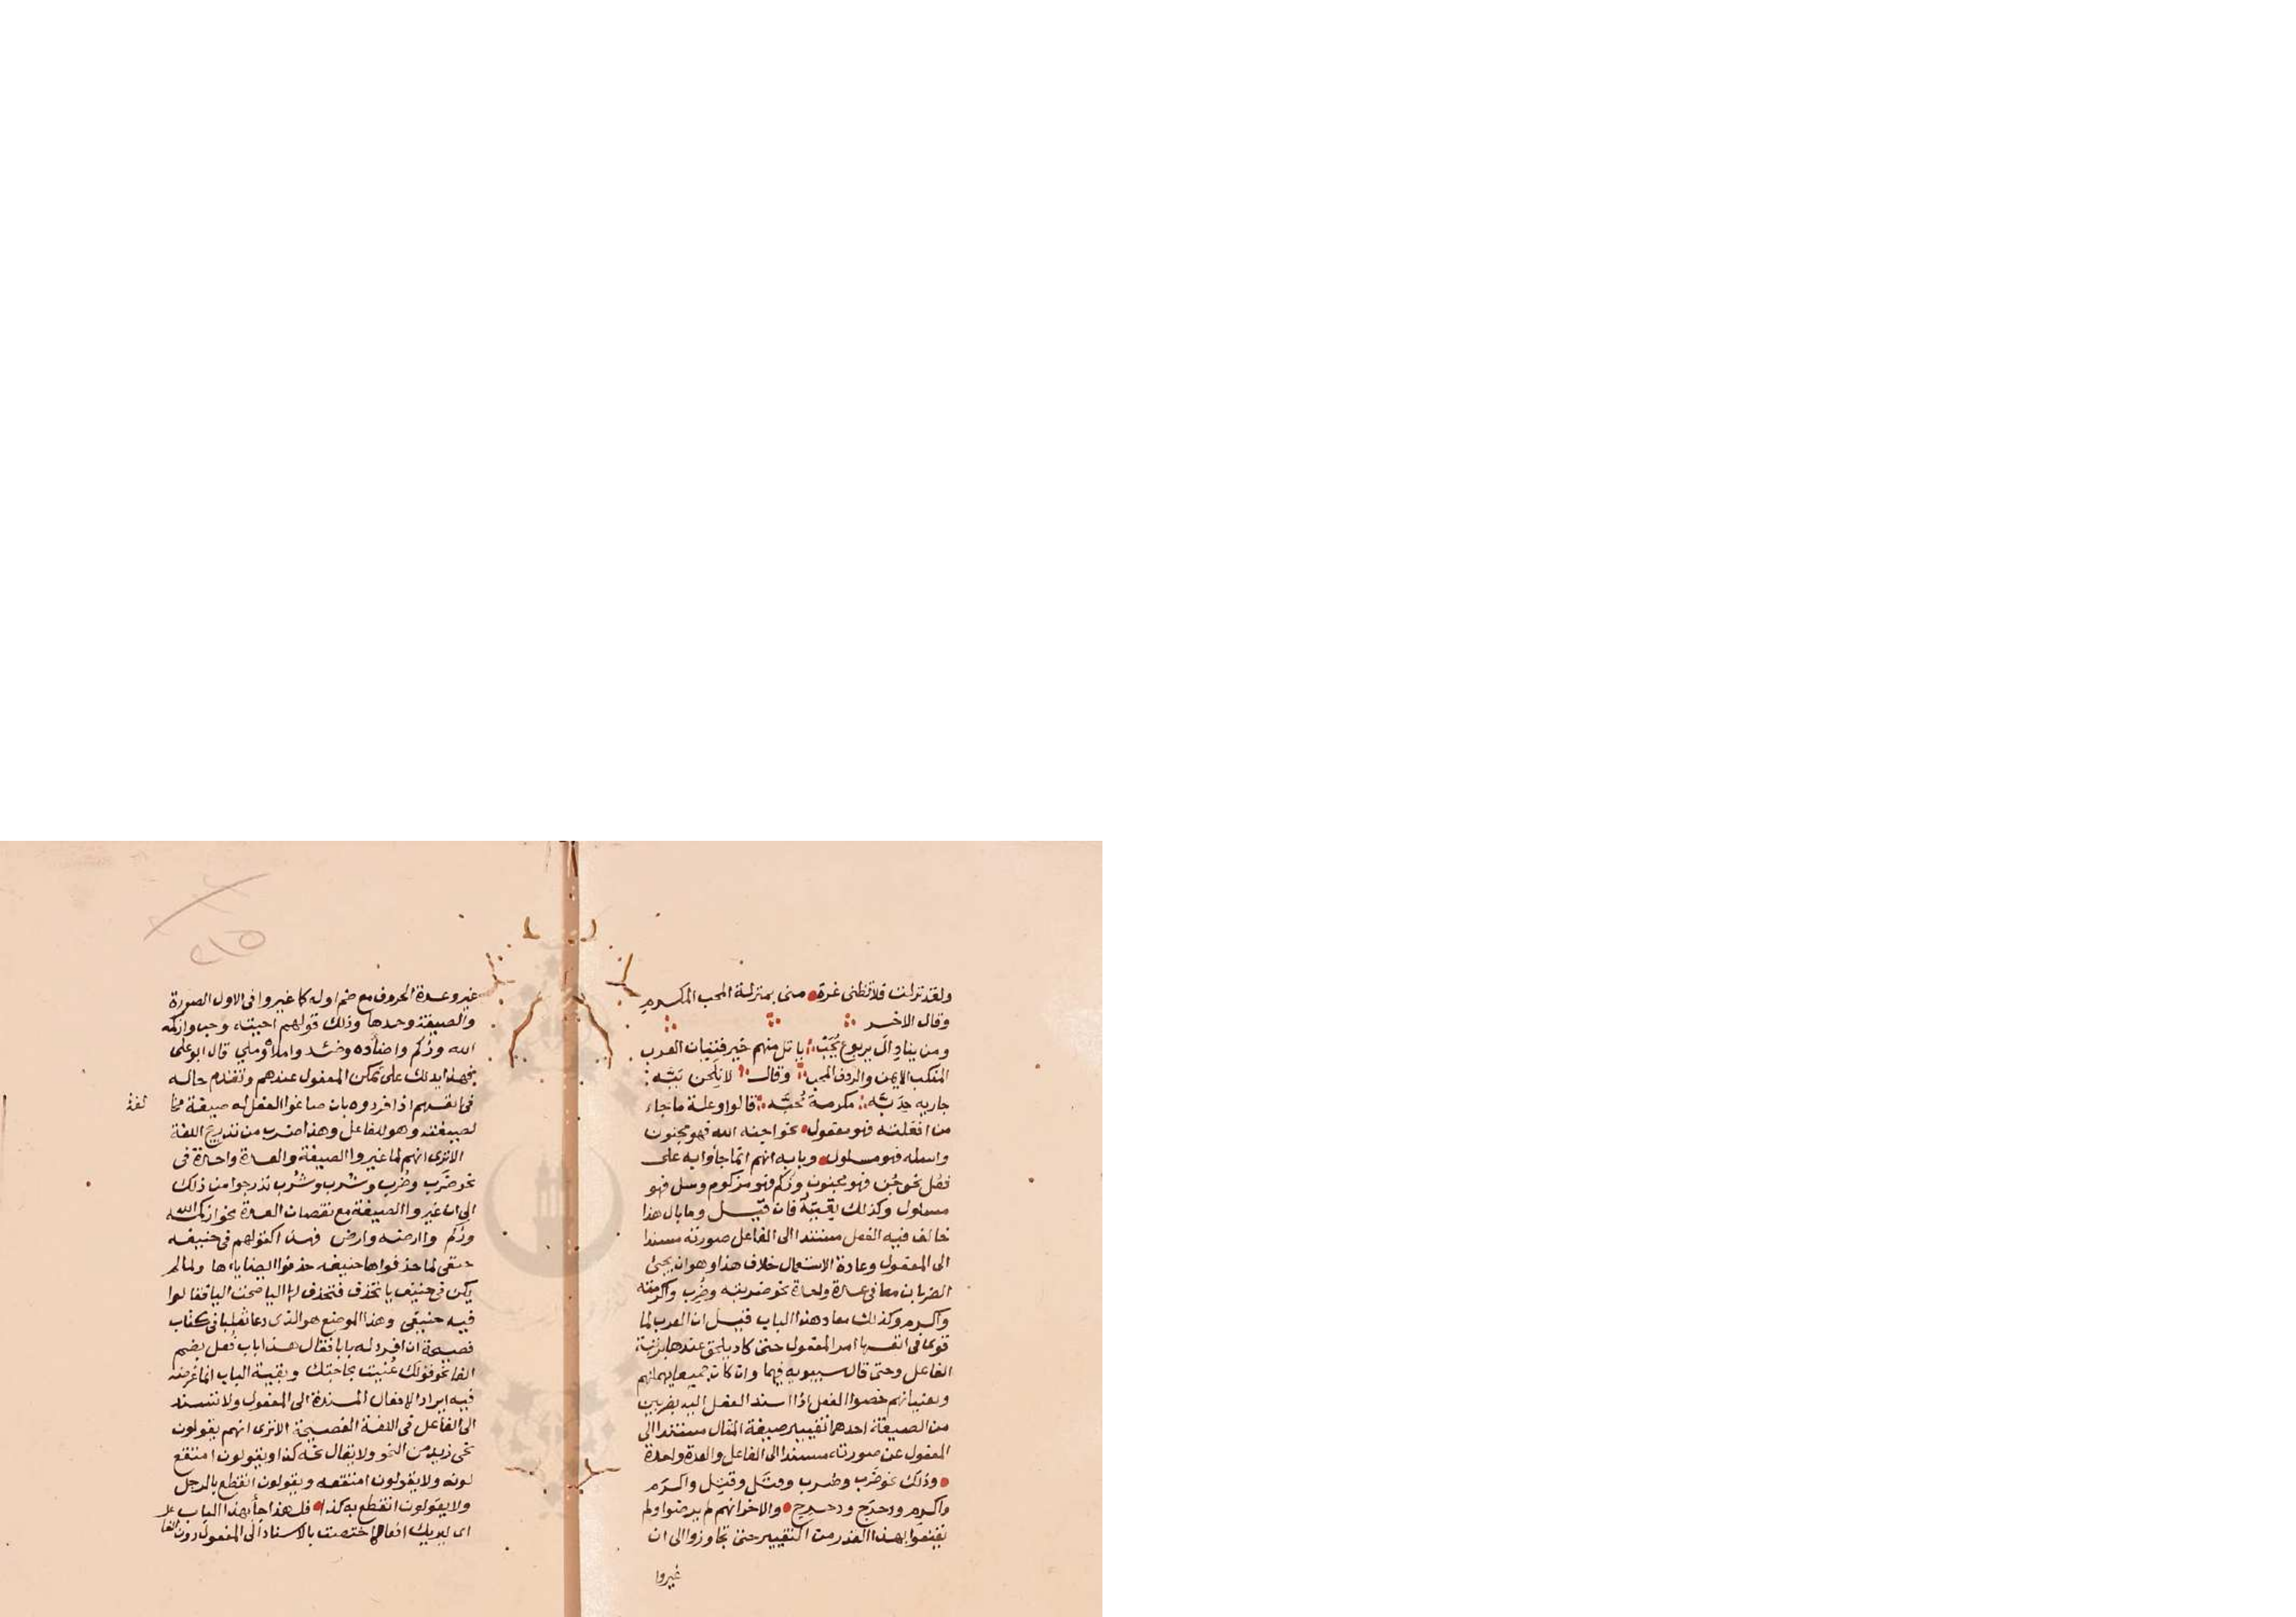 ولقد نزلت فلا تظنى غرة مىنى بمنزلة المحب المكرم
وقال الاخر
ومن يناد ال يربوع يُجَب ياتل منهم خير فتيان العرب
المنكب الايمن والردف المحب وقال لانكحن بَبّه
جاريه خِدَبَّه مكرمة مُحبّه قالوا وعلة ما جاء
من افعلته فهو مفعول نحو اجنه الله فهو مجنون
واسله فهو مسلول وبابه انهم انما جاوا به على
فعل نحو جُن فهو مجنون وزُكم فهو مزكوم وسل فهو
مسلول وكذلك بقيته فان قيل وما بال هذا
خالف فيه الفعل مسندا الى الفاعل صورته مسندا
الى المفعول وعادة الاستعمال خلاف هذا وهو ان يجئ
الضربان معا فى عدة واحدة نحو ضربته وضُرب واكرمته
واكرم وكذلك معاد هذا الباب قيل ان العرب لما
قوى فى انفسها امر المفعول حتى كاد يلحق عندها برتبة
الفاعل وحتى قال سيبويه فيهما وان كان جميعا يهمانهم
ويعنيانهم خصوا الفعل اذا اسند الفعل اليه بضربين
من الصيغة احدهما تغيير صيغة المثال مسندا الى
المفعول عن صورته مسندا الى الفاعل والعدة واحدة
وذلك نحو ضَرب وضرب وقتَل وقتِل واكرَم
واكرم ودحرَج ودحرج والاخر انهم لم يرضوا ولم
يقنعوا بهذا القدر من التغيير حتى تجاوزوا الى ان
غيروا
غيرو عدة الحروف مع ضم اوله كما غيروا فى الاول الصورة
والصيغة وحدها وذلك قولهم احببته وحب وازكمه
الله وزُكم واضأده وضئد واملاه وملي قال ابو على
فهذا يدلك على تمكن المفعول عندهم وتقدم حاله
فى انفسهم اذ افردوه بان صاغوا الفعل له صيغة مخا
لفة
لصيغته وهو للفاعل وهذا ضرب من تدريج اللغة
الا ترى انهم لما غيروا الصيغة والعدة واحدة فى
نحو ضَرب وضُرب وشرب وشُرب تدرجوا من ذلك
الى ان غيروا الصيغة مع نقصان العدة نحو ازكمه الله
وزُكم واارضه وارض فهذا كقولهم فى حنيفه
حنفى لما حذفوا هاء حنيفه حذفوا ايضا ياءها ولما لم
يكن فى حنيف يا تحذف فتحذف لها اليا صحت اليا فقالوا
فيه حنيفى وهذا الموضع هو الذى دعا ثعلبا فى كتاب
فصيحه ان افرد له بابا فقال هذا باب فُعل بضم
الفا نحو قولك عُنيت بحاجتك وبقية الباب انما غرضه
فيه ايراد الافعال المسندة الى المفعول ولا تسند
الى الفاعل فى اللغة الفصيحة الا ترى انهم يقولون
نخى زيد من النخو ولا يقال نخه كذا ويقولون امتقع
لونه ولا يقولون امتقعه ويقولون انقطع بالرجل
ولا يقولون انقطع به كذا فلهذا جأ بهذا الباب
اى ليريك افعالا اختصت بالاسناد الى المفعول دون الفا
عل